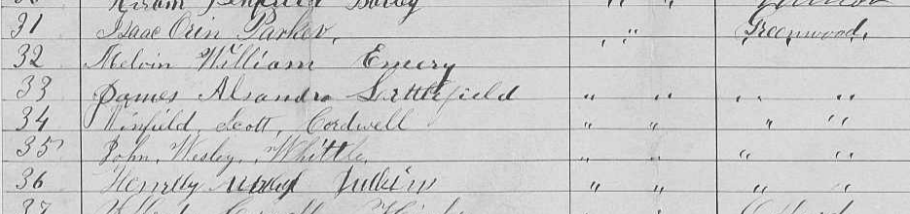 31 Isaac Orin Parker, " " Greenwood,
32 Melvin William Emery
33 James Alsandro Littlefield " " " "
34 Winfield Scott, Cordwell " " " "
35 John, Wesley, Whittle, " " " "
36 Judkins " " " "
37